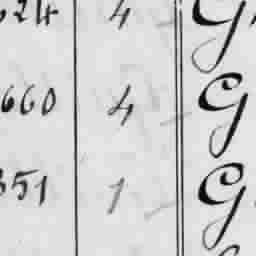 524 4 G
660 4 G
351 1 G